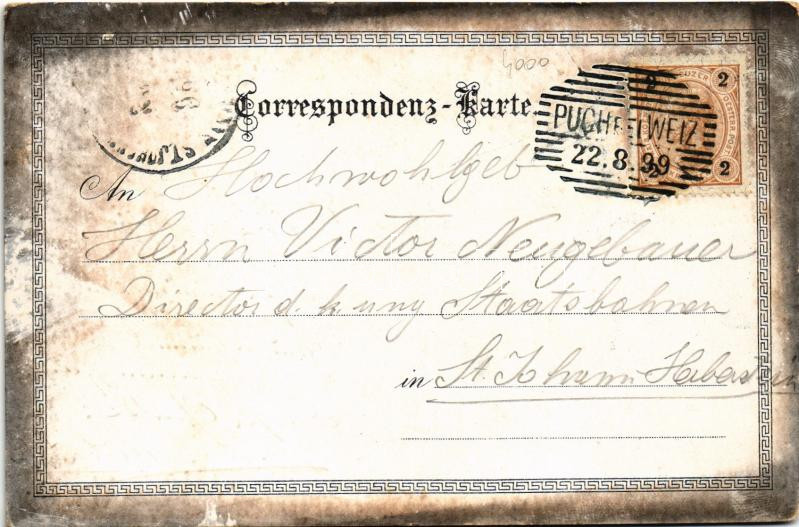 4000
Correspondenz-Karte.
2 2
PUCH BEI WEIZ
22.8.99
2 2
ST. JOHANN
An Hochwohlgeb
Herrn Victor Neugebauer
Director d. k. ung Staatsbahnen
in St. Johann Haberdin